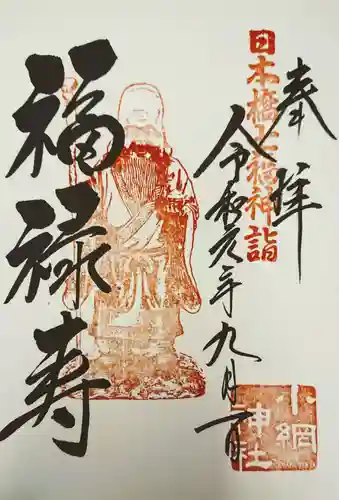 奉拝
日本橋七福神詣
令和元年九月一日
小網神社
福禄寿